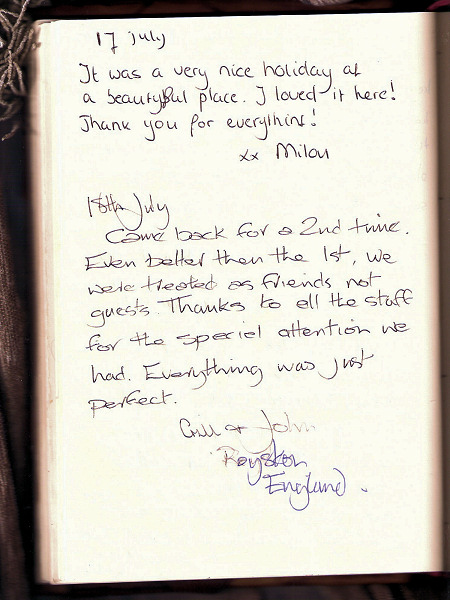 17 july
It was a very nice holiday at
a beautyful place. I loved it here!
Thank you for everything!
xx Milou
18th July
Came back for a 2nd time.
Even better then the 1st, we
were treated as friends not
guests. Thanks to all the staff
for the special attention we
had. Everything was just
perfect.
Gill & John
Royston
England.